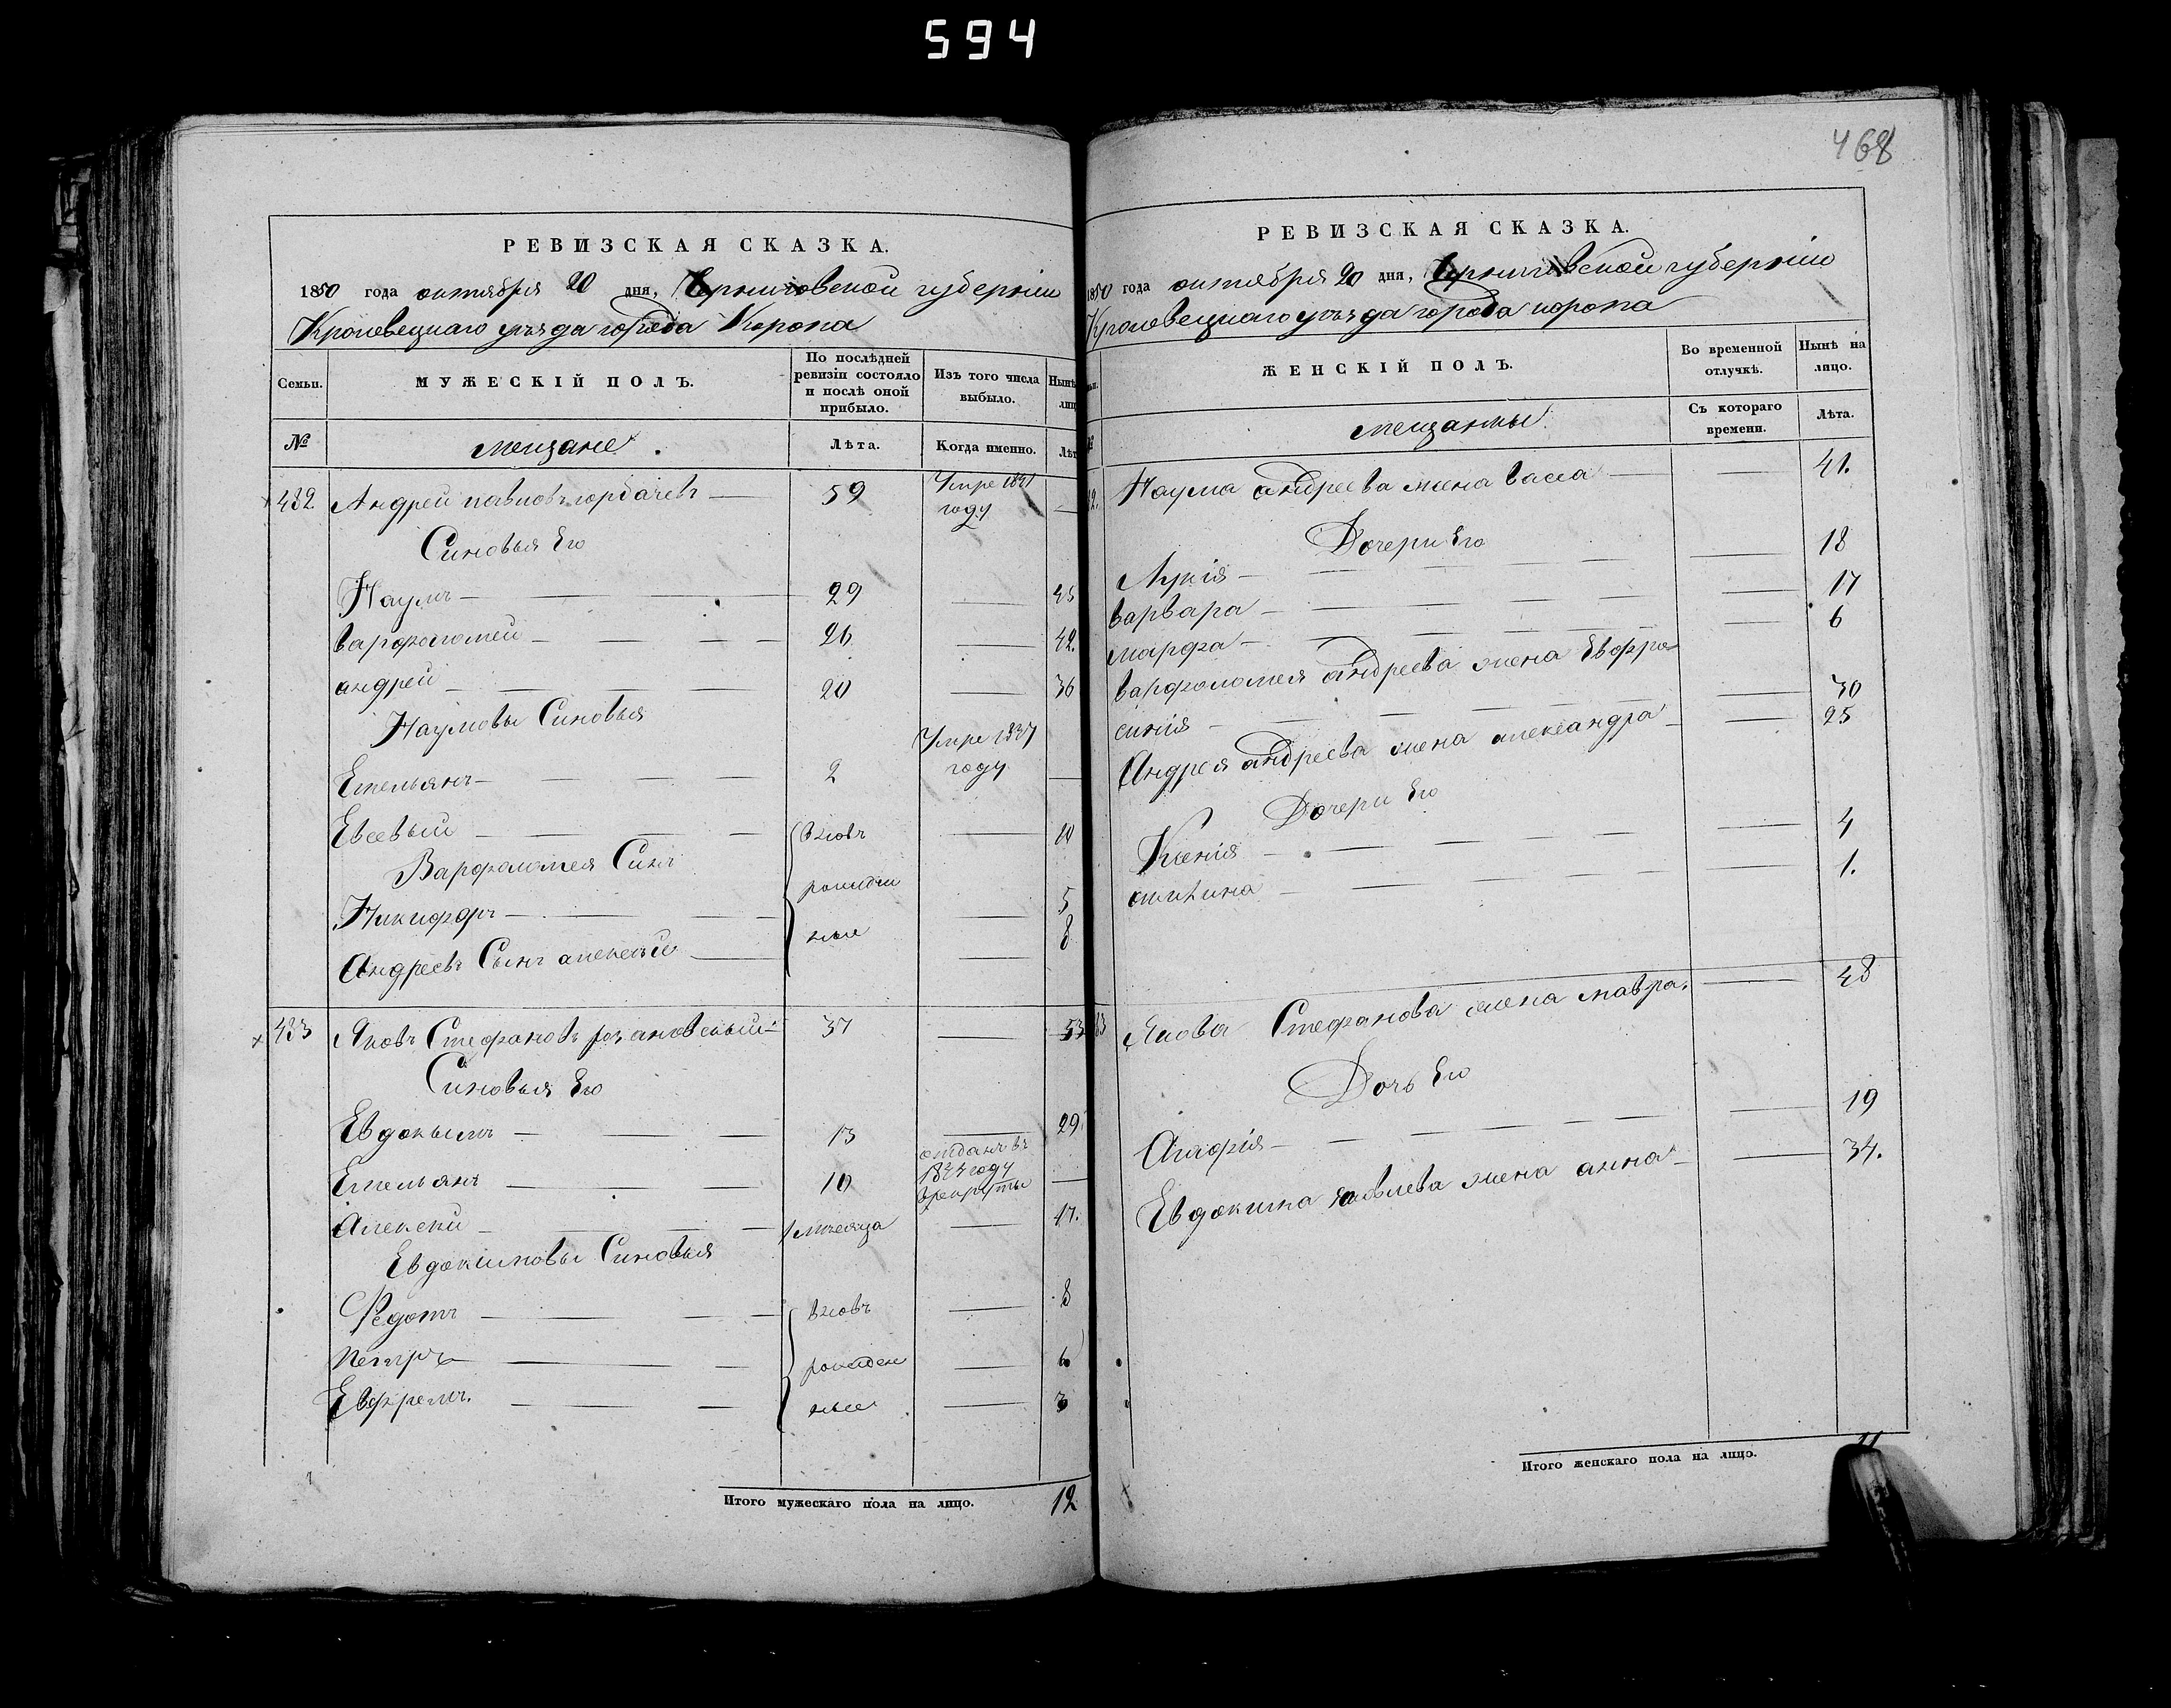 594
РЕВИЗСКАЯ СКАЗКА.
1850 года октября 20 дня, Черниговской губерніи
Кролевецкаго уѣзда города Коропа
Семьи.
МУЖЕСКІЙ ПОЛЪ.
По послѣдней ревизіи состояло и послѣ оной прибыло.
Изъ того числа выбыло.
Нынѣ
лиц
№
мещане.
Лѣта.
Когда именно.
Лѣт
432. Андрей павловъ горбачевъ — 59 Умре 1831 году —
Синовья Его
Наумъ — 29 — 45
варфоломей — 26 — 42.
андрей — 20 — 36
Наумовы Синовья
Емельянъ — 2 Умре 1837 году —
Евсевый — вновь — 10
Варфоломея Синъ
рожден
Никифоръ — — 5
ные 8
Андреевъ Сынъ алексѣй — —
433 Яковъ Стефановъ — 37 — 53
Синовья Его
Евдокымъ — 13 — 29.
Емельянъ — 10 отданъ въ 1844 году врекруты —
Алексей — 1 месяца — 17.
Евдокимовы Синовья
Федотъ — вновь — 8
Петръ — рожден — 6
Ефремъ. — ные — 3
Итого мужескаго пола на лицо. 12
468
РЕВИЗСКАЯ СКАЗКА.
1850 года октября 20 дня, Черниговской губерніи
Кролевецкаго уѣзда города коропа
ЖЕНСКІЙ ПОЛЪ.
Во временной отлучкѣ.
Нынѣ на лицо.
мещанки.
Съ котораго времени.
Лѣта.
2. Наума андреева жена васса — — 41.
Дочери Его
Лукія — — 18
варвара — — 17
марфа — — 6
варфоломея андреева жена Евфро-
синія — — 30
Андрея андреева жена александра — — 25
Дочери Его
Ксенія — — 4
акилина — — 1.
33 Якова Стефанова жена мавра. — 48
Дочь Его
Агафія — — 19
Евдокима яковлева жена анна — — 34.
Итого женскаго пола на лицо. 11